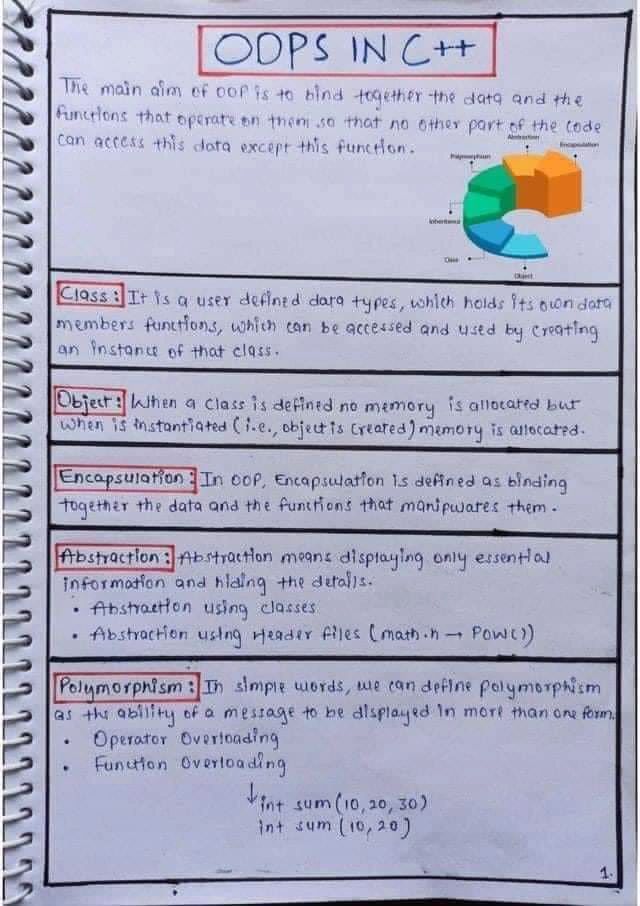 OOPS IN C++
The main aim of OOP is to bind together the data and the
functions that operate on them so that no other part of the code
can access this data except this function.
Abstraction
Encapsulation
Polymorphism
Inheritance
Class
Object
Class : It is a user defined data types, which holds its own data
members functions, which can be accessed and used by creating
an instance of that class.
Object : When a class is defined no memory is allocated but
when is instantiated (i.e., object is created) memory is allocated.
Encapsulation : In OOP, Encapsulation is defined as binding
together the data and the functions that manipulates them.
Abstraction : Abstraction means displaying only essential
information and hiding the details.
• Abstraction using classes
• Abstraction using Header files (math.h → POW())
Polymorphism : In simple words, we can define polymorphism
as the ability of a message to be displayed in more than one form.
• Operator Overloading
• Function Overloading
↓ int sum (10, 20, 30)
int sum (10, 20)
1.